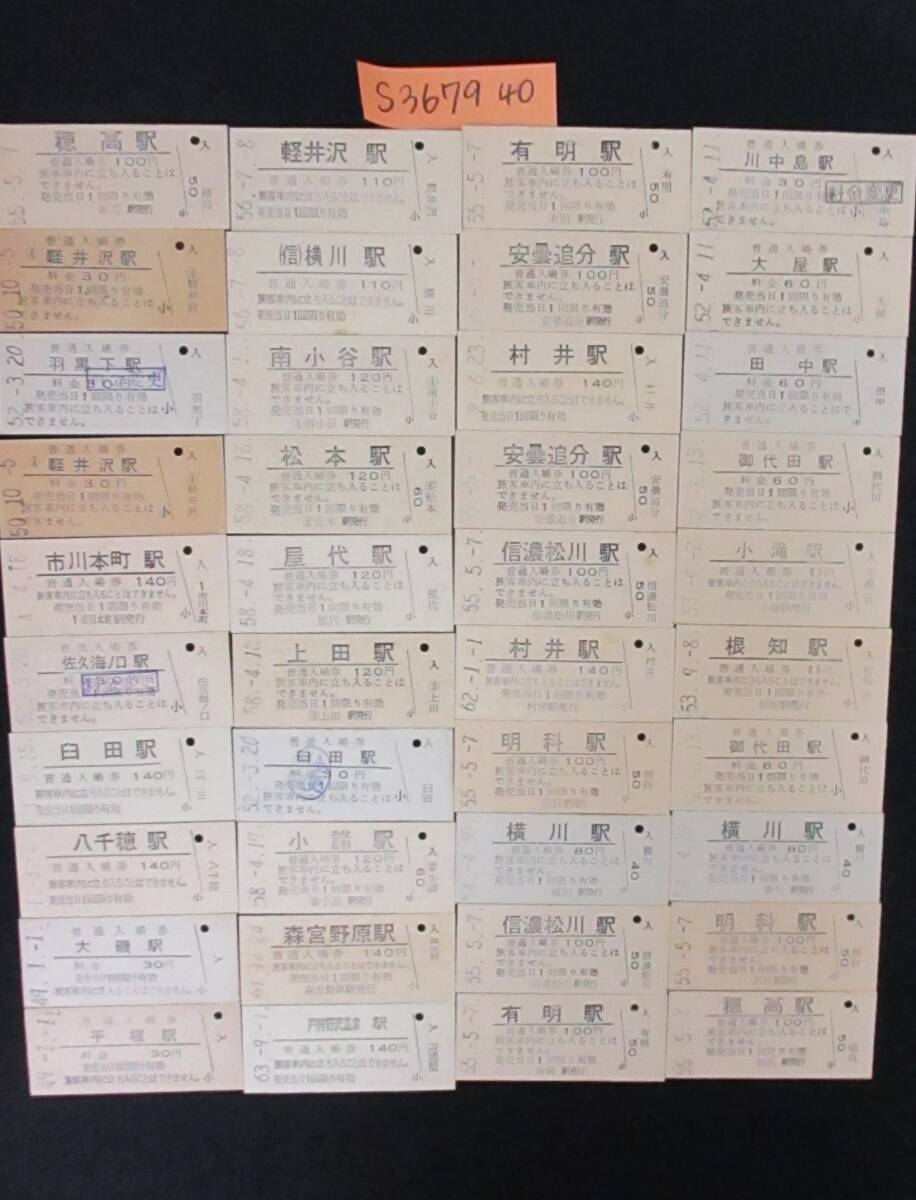 S3679 40
穂高駅
普通入場券 100円
旅客車内に立ち入ることは
できません。
発売当日1回限り有効
駅発行
55.-5.-7
入
50
穂高
小
軽井沢 駅
普通入場券 110円
旅客車内に立ち入ることはできません。
発売当日1回限り有効
56.-7.-8
入
軽井沢
小
有明駅
普通入場券 100円
旅客車内に立ち入ることは
できません。
発売当日1回限り有効
有明 駅発行
55.-5.-7
入
有明
50
小
普通入場券
川中島駅
料金 30円
料金変更
発売当日1回限り有効
旅客車内に立ち入ることは
できません。
52.-4.11
入
小
普通入場券
軽井沢駅
料金 30円
発売当日1回限り有効
旅客車内に立ち入ることは
できません。
50.10.-5
入
小
(信)横川 駅
普通入場券 110円
旅客車内に立ち入ることはできません。
発売当日1回限り有効
56.-7.-8
入
横川
小
安曇追分 駅
普通入場券 100円
旅客車内に立ち入ることは
できません。
発売当日1回限り有効
安曇追分 駅発行
入
安曇追分
50
小
普通入場券
大屋駅
料金 60円
発売当日1回限り有効
旅客車内に立ち入ることは
できません。
52.-4.11
入
大屋
小
普通入場券
羽黒下駅
料金 30円
発売当日1回限り有効
旅客車内に立ち入ることは
できません。
52.-3.20
入
羽黒下
小
南小谷駅
普通入場券 120円
旅客車内に立ち入ることは
できません。
発売当日1回限り有効
①南小谷 駅発行
58.-4.-1
入
①南小谷
小
村井駅
普通入場券 140円
旅客車内に立ち入ることはできません。
発売当日1回限り有効
入
村井
小
普通入場券
田中駅
料金 60円
発売当日1回限り有効
旅客車内に立ち入ることは
できません。
52.-4.11
入
田中
小
普通入場券
軽井沢駅
料金 30円
発売当日1回限り有効
旅客車内に立ち入ることは
できません。
50.10.-5
入
小
松本駅
普通入場券 120円
旅客車内に立ち入ることは
できません。
発売当日1回限り有効
⑥松本 駅発行
58.-4.18
入
⑥松本
60
小
安曇追分駅
普通入場券 100円
旅客車内に立ち入ることは
できません。
発売当日1回限り有効
安曇追分 駅発行
入
安曇追分
50
小
普通入場券
御代田駅
料金 60円
発売当日1回限り有効
旅客車内に立ち入ることは
できません。
入
御代田
小
市川本町 駅
普通入場券 140円
旅客車内に立ち入ることはできません。
発売当日1回限り有効
1市川本町 駅発行
入
1市川本町
小
屋代駅
普通入場券 120円
旅客車内に立ち入ることは
できません。
発売当日1回限り有効
屋代 駅発行
58.-4.18
入
屋代
小
信濃松川 駅
普通入場券 100円
旅客車内に立ち入ることは
できません。
発売当日1回限り有効
信濃松川 駅発行
55.-5.-7
入
信濃松川
50
小
小滝駅
普通入場券 80円
旅客車内に立ち入ることはできません。
発売当日1回限り有効
小滝駅発行
53.-9.-2
入
小
普通入場券
佐久海ノ口駅
発売当日1回限り有効
旅客車内に立ち入ることは
できません。
入
佐久海ノ口
小
上田駅
普通入場券 120円
旅客車内に立ち入ることは
できません。
発売当日1回限り有効
③上田 駅発行
58.-4.18
入
③上田
小
村井駅
普通入場券 140円
旅客車内に立ち入ることはできません。
発売当日1回限り有効
村井駅発行
62.-1.-1
入
村井
小
根知駅
普通入場券 80円
旅客車内に立ち入ることはできません。
発売当日1回限り有効
根知駅発行
53.-9.-8
入
小
臼田駅
普通入場券 140円
旅客車内に立ち入ることはできません。
発売当日1回限り有効
入
臼田
小
普通入場券
臼田駅
料金 30円
発売当日1回限り有効
旅客車内に立ち入ることは
できません。
52.-3.20
入
臼田
小
明科駅
普通入場券 100円
旅客車内に立ち入ることは
できません。
発売当日1回限り有効
明科 駅発行
55.-5.-7
入
明科
50
小
普通入場券
御代田駅
料金 60円
発売当日1回限り有効
旅客車内に立ち入ることは
できません。
入
御代田
小
八千穂駅
普通入場券 140円
旅客車内に立ち入ることはできません。
発売当日1回限り有効
入
八千穂
小
小諸駅
普通入場券 120円
旅客車内に立ち入ることは
できません。
発売当日1回限り有効
小諸 駅発行
58.-4.19
入
小諸
60
小
横川駅
普通入場券 80円
旅客車内に立ち入ることは
できません。
発売当日1回限り有効
横川 駅発行
入
横川
40
小
横川駅
普通入場券 80円
旅客車内に立ち入ることは
できません。
発売当日1回限り有効
横川 駅発行
入
横川
40
小
普通入場券
大磯駅
料金 30円
発売当日1回限り有効
旅客車内に立ち入ることはできません。
49.-1.-1
入
小
森宮野原駅
普通入場券 140円
旅客車内に立ち入ることはできません。
発売当日1回限り有効
森宮野原駅発行
61.12.24
入
小
信濃松川 駅
普通入場券 100円
旅客車内に立ち入ることは
できません。
発売当日1回限り有効
信濃松川 駅発行
55.-5.-7
入
信濃松川
50
小
明科駅
普通入場券 100円
旅客車内に立ち入ることは
できません。
発売当日1回限り有効
明科 駅発行
55.-5.-7
入
明科
50
小
普通入場券
平塚駅
料金 30円
旅客車内に立ち入ることはできません。
発売当日1回限り有効
49.-1.-1
入
小
戸狩野沢温泉 駅
普通入場券 140円
旅客車内に立ち入ることはできません。
発売当日1回限り有効
63.-9.-1
入
戸狩野沢温泉
小
有明駅
普通入場券 100円
旅客車内に立ち入ることは
できません。
発売当日1回限り有効
有明 駅発行
55.-5.-7
入
有明
50
小
穂高駅
普通入場券 100円
旅客車内に立ち入ることは
できません。
発売当日1回限り有効
駅発行
55.-5.-7
入
穂高
50
小